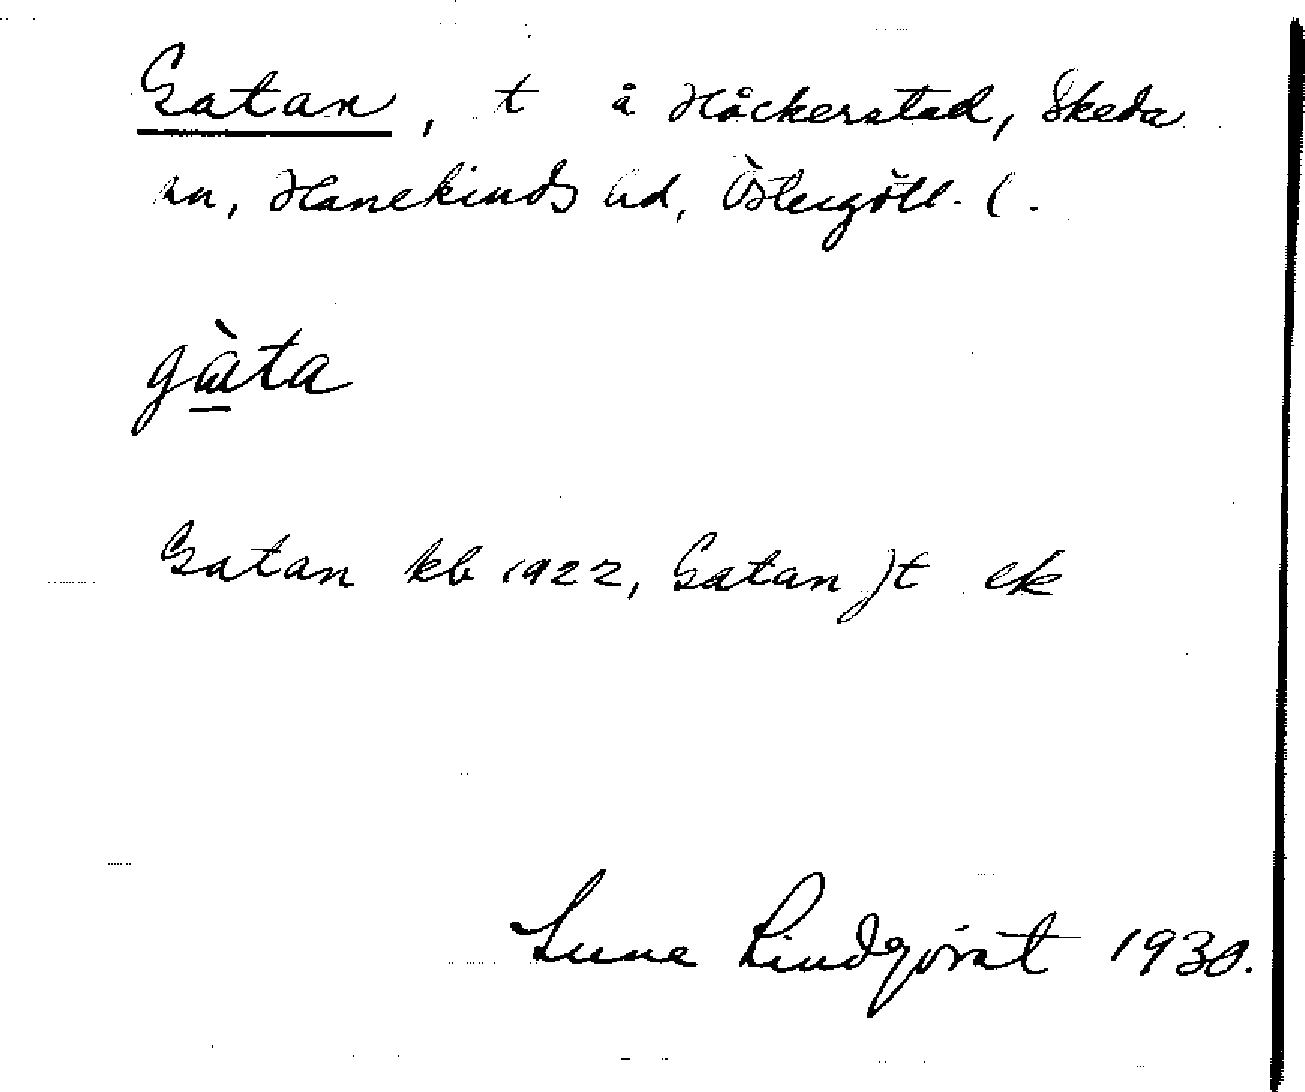 Gatan, t å Håckerstad, Skeda
sn, Hanekinds hd, Östergötl. l.
gàta
Gatan kb 1922, Gatan jt ek
Sune Lindqvist 1930.